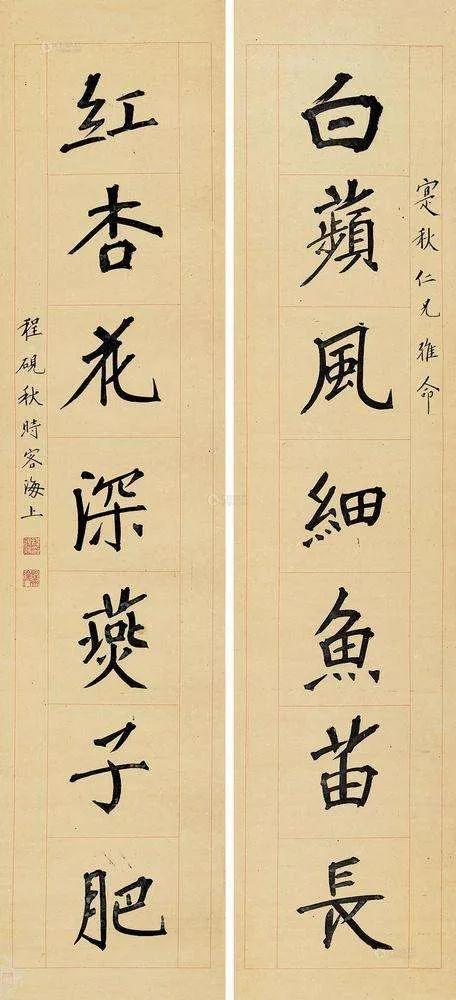 寔秋仁兄雅命
白蘋風細魚苗長
紅杏花深燕子肥
程硯秋時客海上